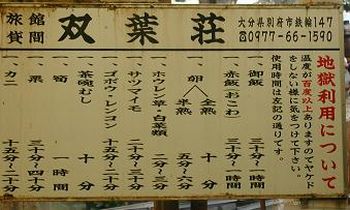 旅館
貸間
双葉荘
大分県別府市鉄輪147
☎0977-66-1590
地獄利用について
温度が百度以上ありますのでヤケド
をしない様に気をつけて下さい。
使用時間は左記の通りです。
一、御飯 三十分〜一時間
一、赤飯(おこわ) 三十分〜
一、卵 全熟 十分
半熟 五分〜六分
一、ホウレン草・白菜類 二分〜三分
一、サツマイモ 二十分〜三十分
一、ゴボウ・レンコン 二十分〜三十分
一、茶碗むし 十分
一、筍 一時間
一、栗 三十分〜四十分
一、カニ 十五分〜二十分